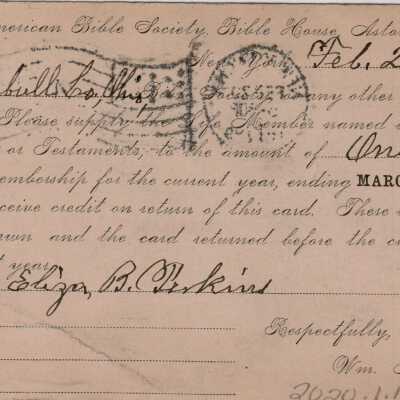 merican Bible Society, Bible House, Asto
New York, Feb. 2
any other
Please supply the Life Member named
or Testaments, to the amount of One
embership for the current year, ending MARC
ceive credit on return of this card. These
wn and the card returned before the c
t year.
Eliza B. Perkins
Respectfully,
Wm.
2020.1.1